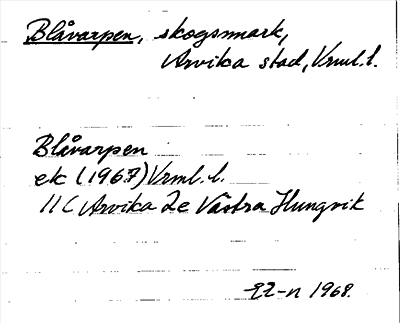 Blåvarpen, skogsmark,
Arvika stad, Vrml. l.
Blåvarpen
ek (1967) Vrml. l.
11C Arvika 2e Västra Hungvik
1968.